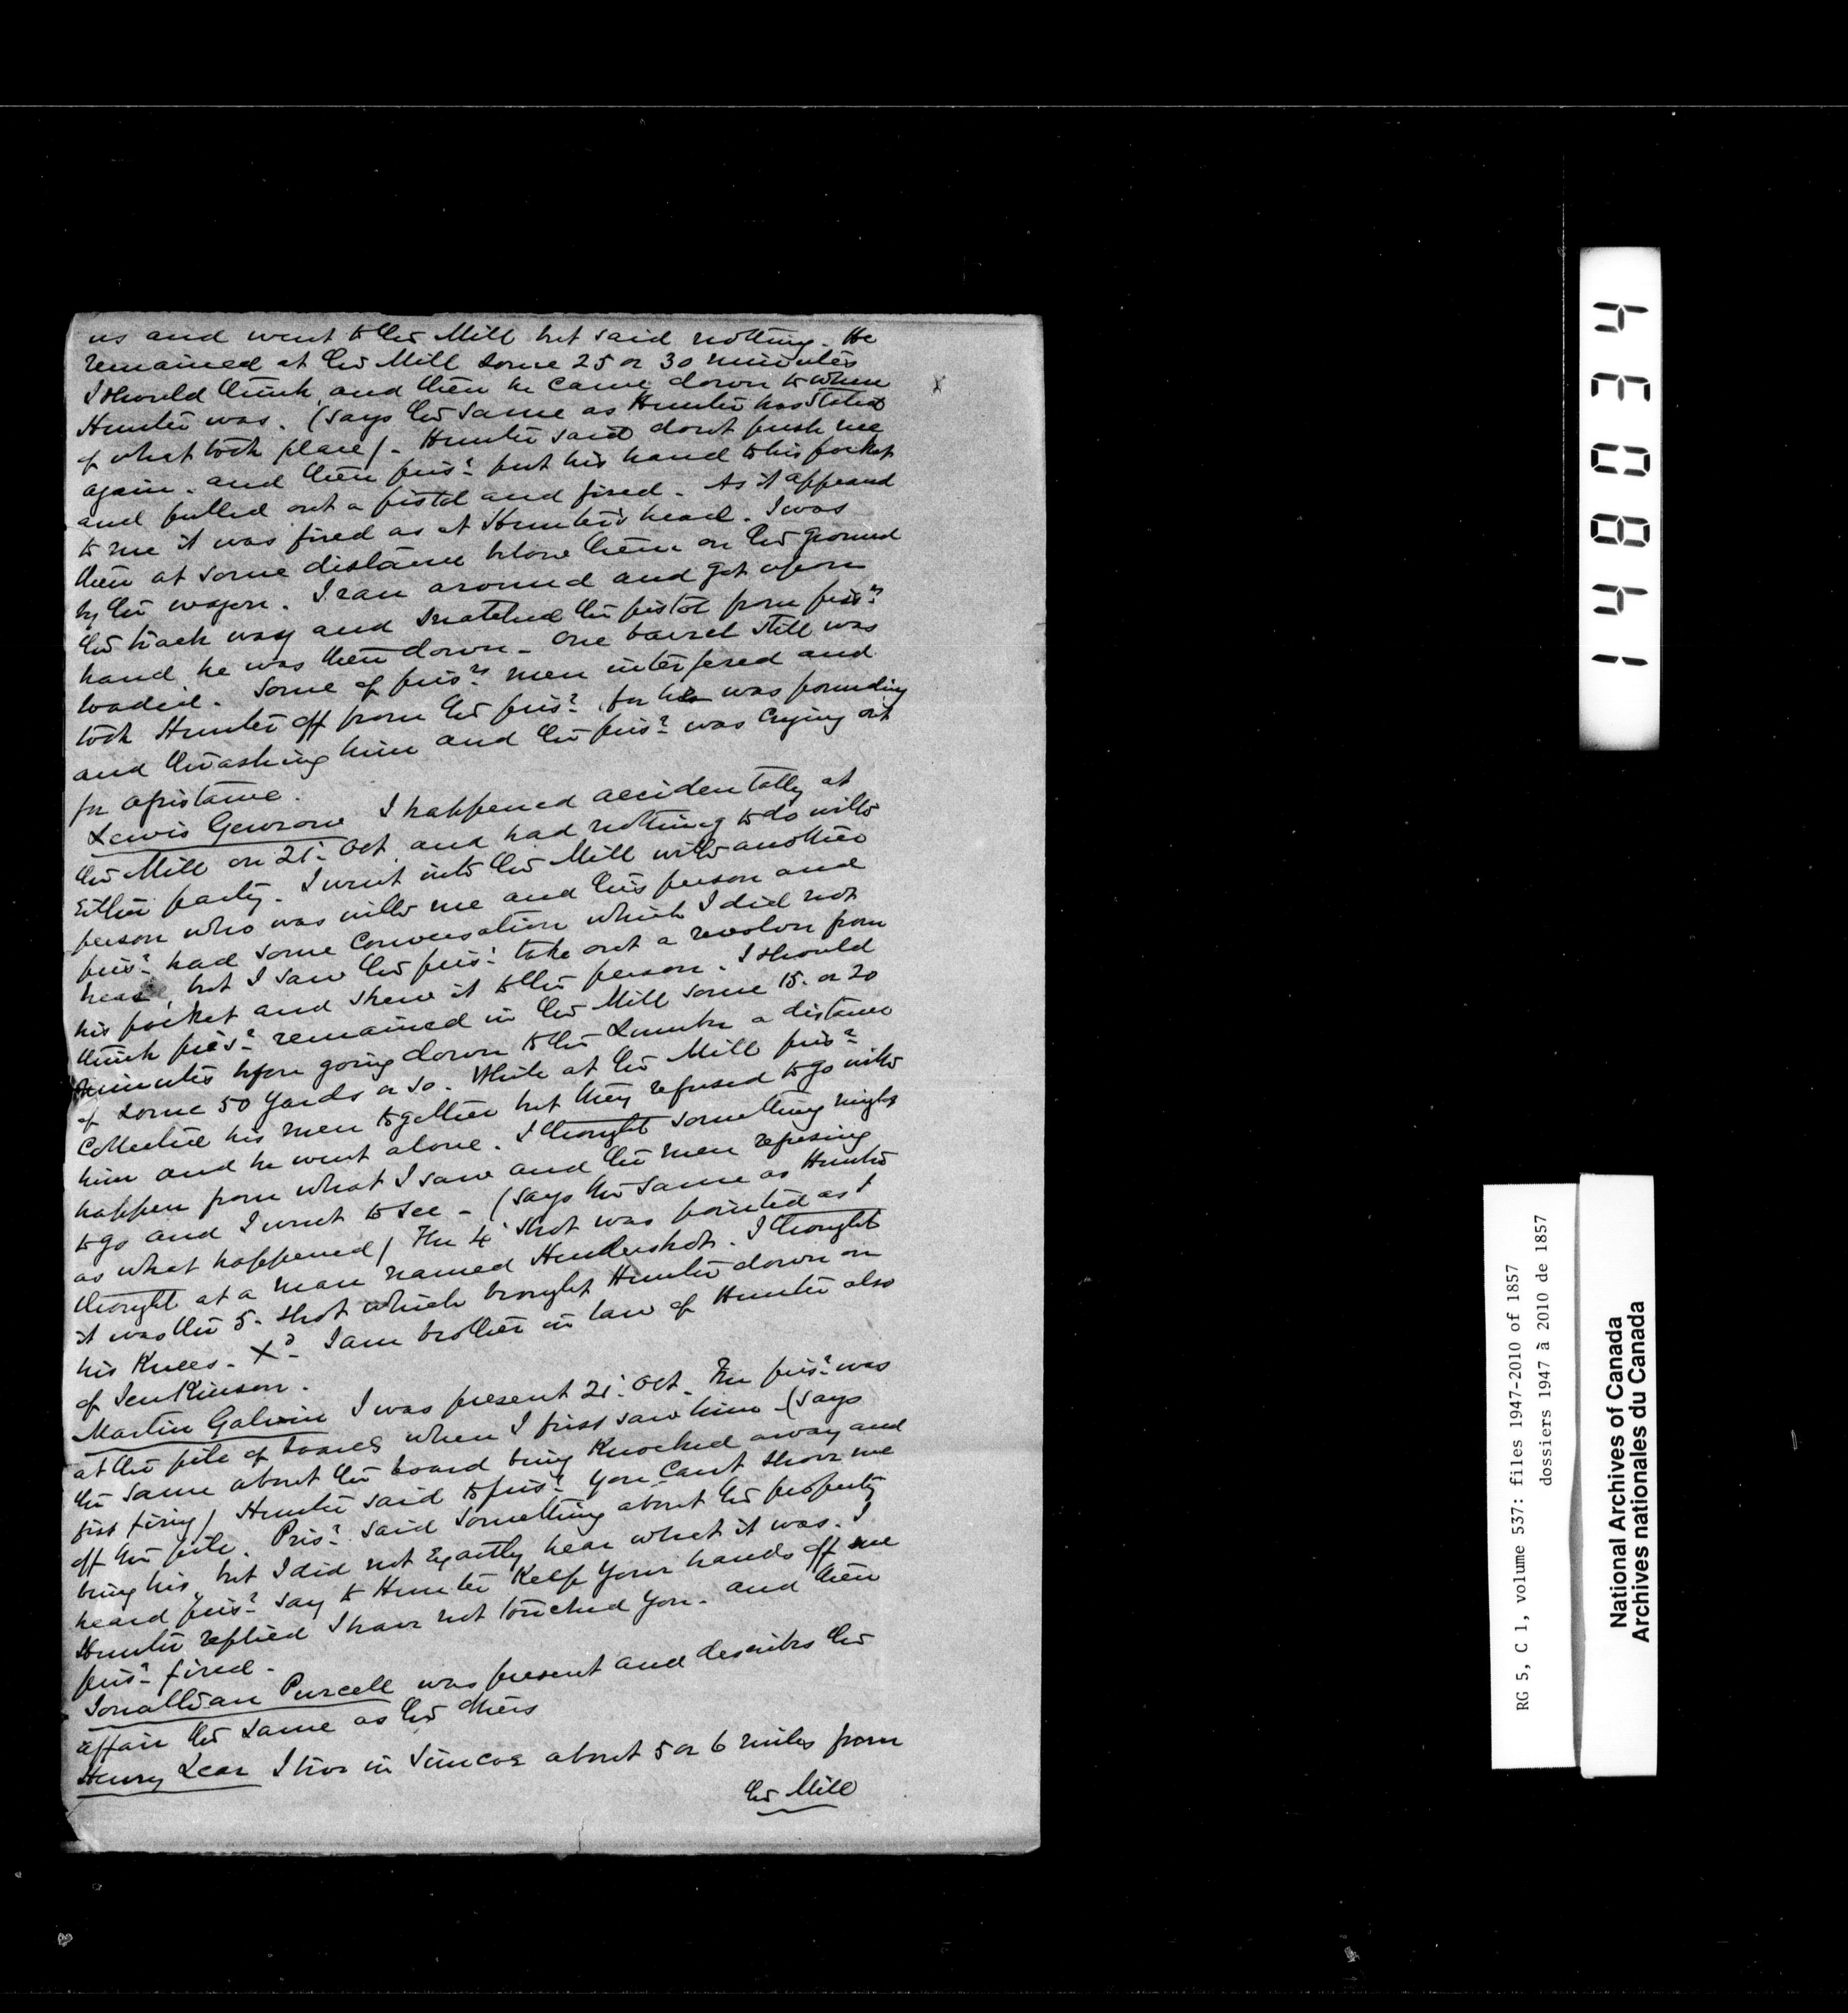 us and went to the Mill but said nothing. He
remained at the Mill some 25 or 30 minutes
I should think, and then he came down to where
Hunter was. (says the same as Hunter has stated
of what took place) - Hunter said dont push me
again. and then pris.r put his hand to his pocket
and pulled out a pistol and fired. As it appeared
to me it was fired as at Hunter's head. I was
then at some distance below them on the ground
by the wagon. I ran around and got upon
the track way and snatched the pistol from pris.rs
hand, he was then down - One barrel still was
loaded. Some of pris.rs men interfered and
took Hunter off from the pris.r, for he was pounding
and thrashing him and the pris.r was crying out
for assistance.
Lewis I happened accidentally at
the Mill on 21st Oct. and had nothing to do with
either party. I went into the Mill with another
person who was with me and this person and
pris.r had some conversation which I did not
hear, but I saw the pris.r take out a revolver from
his pocket and shew it to the person. I should
think pris.r remained in the Mill some 15. or 20
minutes before going down to the Lumber a distance
of some 50 yards or so. While at the Mill pris.r
collected his men together but they refused to go with
him and he went alone. I thought something might
happen from what I saw and the men refusing
to go and I went to see - (says the same as Hunter
as what happened) The 4th shot was pointed as I
thought at a man named Hendershot. I thought
it was the 5th shot which brought Hunter down on
his Knees. Xd - I am brother in law of Hunter also
of Jenkinson.
Martin Galvin I was present 21st Oct. The pris.r was
at the pile of boards when I first saw him - (says
the same about the board being Knocked away and
first firing) Hunter said to pris.r you cant shove me
off the pile. Pris.r said something about the property
being his, but I did not Exactly hear what it was. I
heard pris.r say to Hunter Keep your hands off me
Hunter replied I have not touched you. and then
pris.r fired.
Jonathan Purcell was present and describes the
affair the same as the others
Henry Lear I live in Simcoe about 5 or 6 miles from
the Mill
148034
RG 5, C 1, volume 537: files 1947-2010 of 1857
dossiers 1947 à 2010 de 1857
National Archives of Canada
Archives nationales du Canada